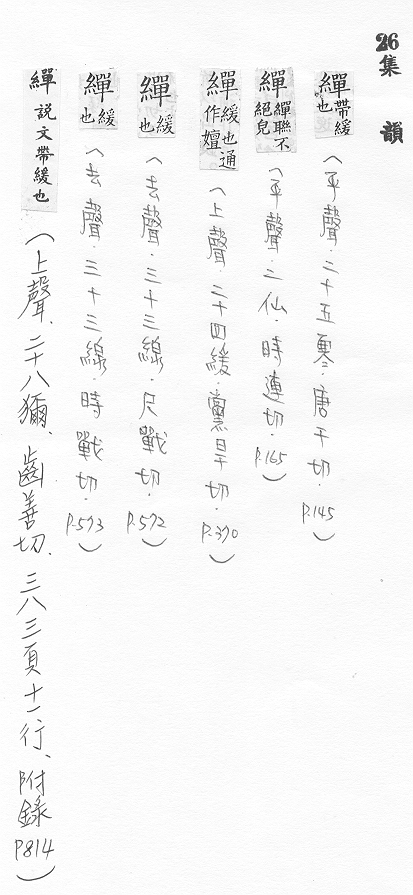 26集韻
繟帶緩也(平聲．二十五寒．唐干切．P.145)
繟繟聯不絕皃(平聲．二仙．時連切．P.165)
繟緩也通作嬗(上聲．二十四緩．黨旱切．P.370)
繟緩也(去聲．三十三線．尺戰切．P.572)
繟緩也(去聲．三十三線．時戰切．P.573)
繟說文帶緩也(上聲、二十八獮、齒善切、三八三頁十一行、附錄P814)